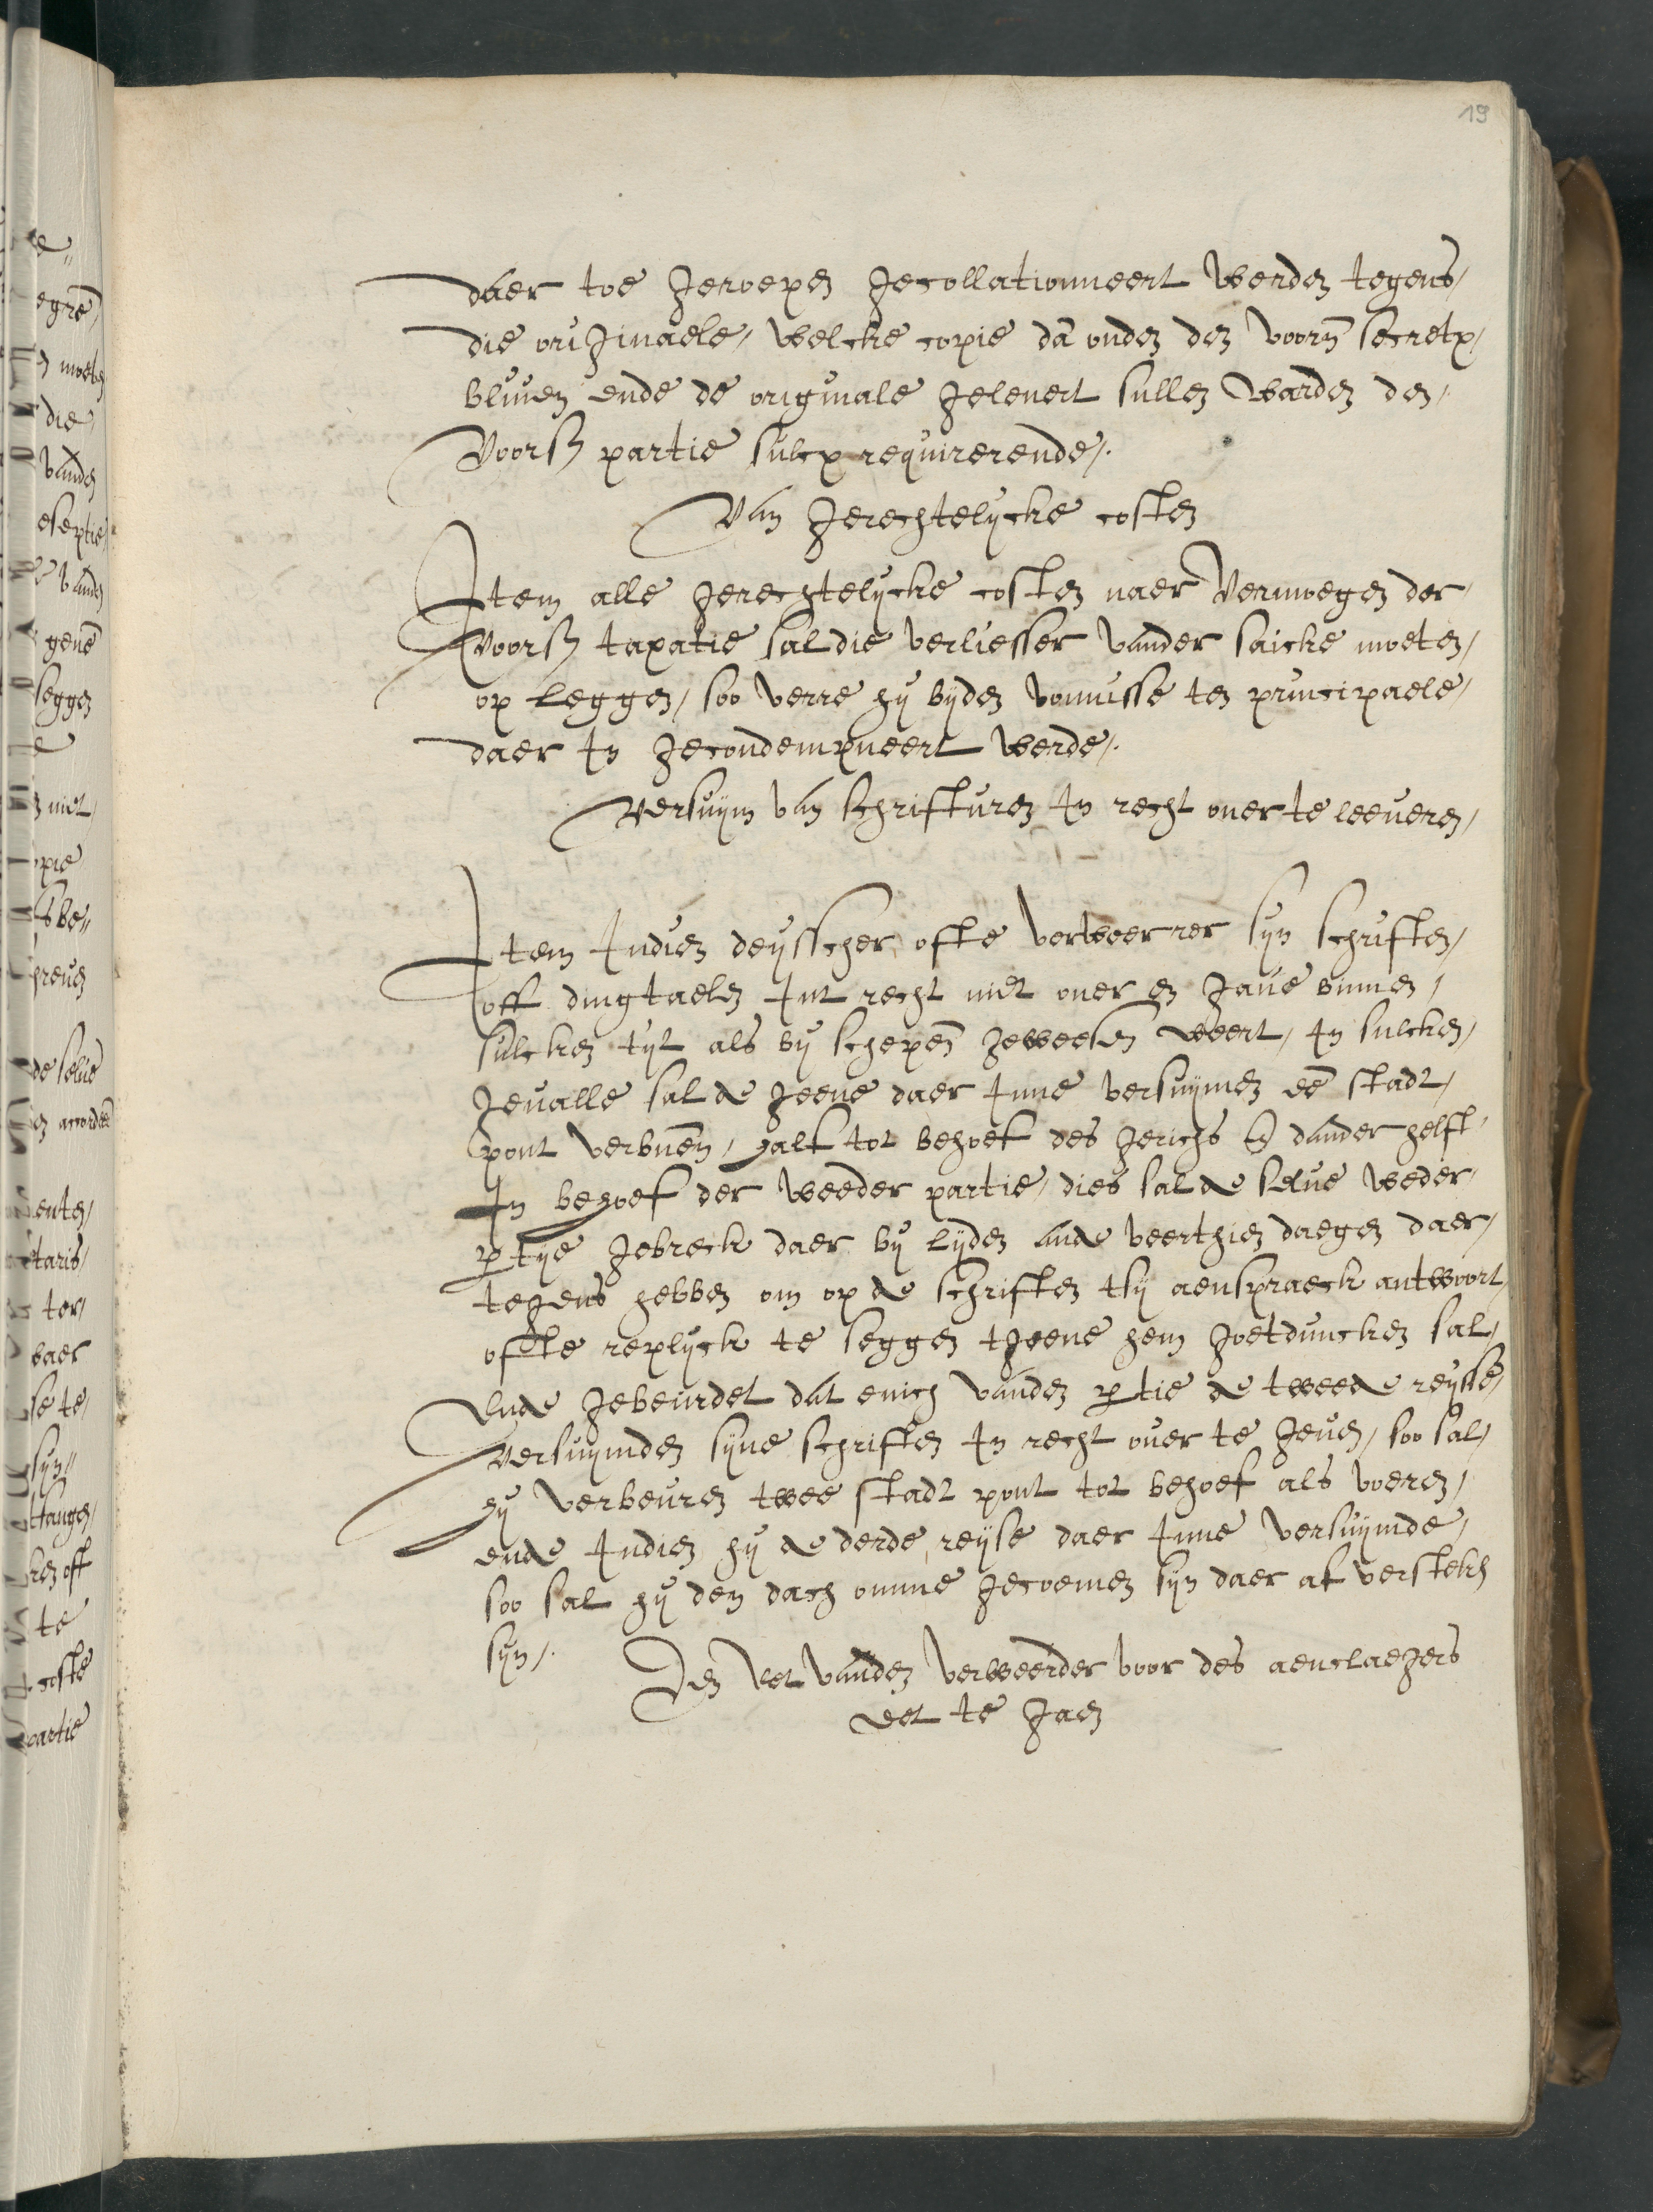 19
daer toe geroepen gecollationneert werden tegens,
die originaele, welcke copie dā onder den voorn̄ secretx,
blijuen ende de originale geleuert sullen warden den,
voorsz partie sulcx requirerende,.
Van gerechtelijcke costen
Item alle gerechtelijcke costen naer vermoegen der,
voorsz taxatie sal die verliesser vander saicke moeten,
op leggen, soo verre hij bijden vonnisse ten principaele,
daer in gecondempneert werde,.
Versuijm van schrifturen in recht ouer te leeueren,
Item indien deijsscher ofte verweerrer sijn schriften,
off dingtaelen int recht niet ouer en gaue binnen,
sulcken tijt als bij schepen̄ geweesen weert, in sulcken,
geualle sal de geene daer inne versuijmen eē stadt,
pont verbuerē, half tot behoef des gerichs en dander helft,
in behoef der weeder partie, dies sal de selue weder,
ptije gebreck daer bij lijden ende veerthien daegen daer,
tegens hebben om op de schriften tsij aenspraeck antwoort,
ofte replijck te seggen tgeene hem goetduncken sal,
Ende gebeurdet dat enich vanden ptie de tweede reijsse,
versuijmden sijne schriften in recht ouer te geuen, soo sal,
hij verbeuren twee stadt pont tot behoef als voeren,
ende indien hij de derde reijse daer inne versuijmde,
soo sal hij den dach omme gecoemen sijn daer af versteken
sijn,.
Den eet vanden verweerder voor des aenclaegers
eet te gaen